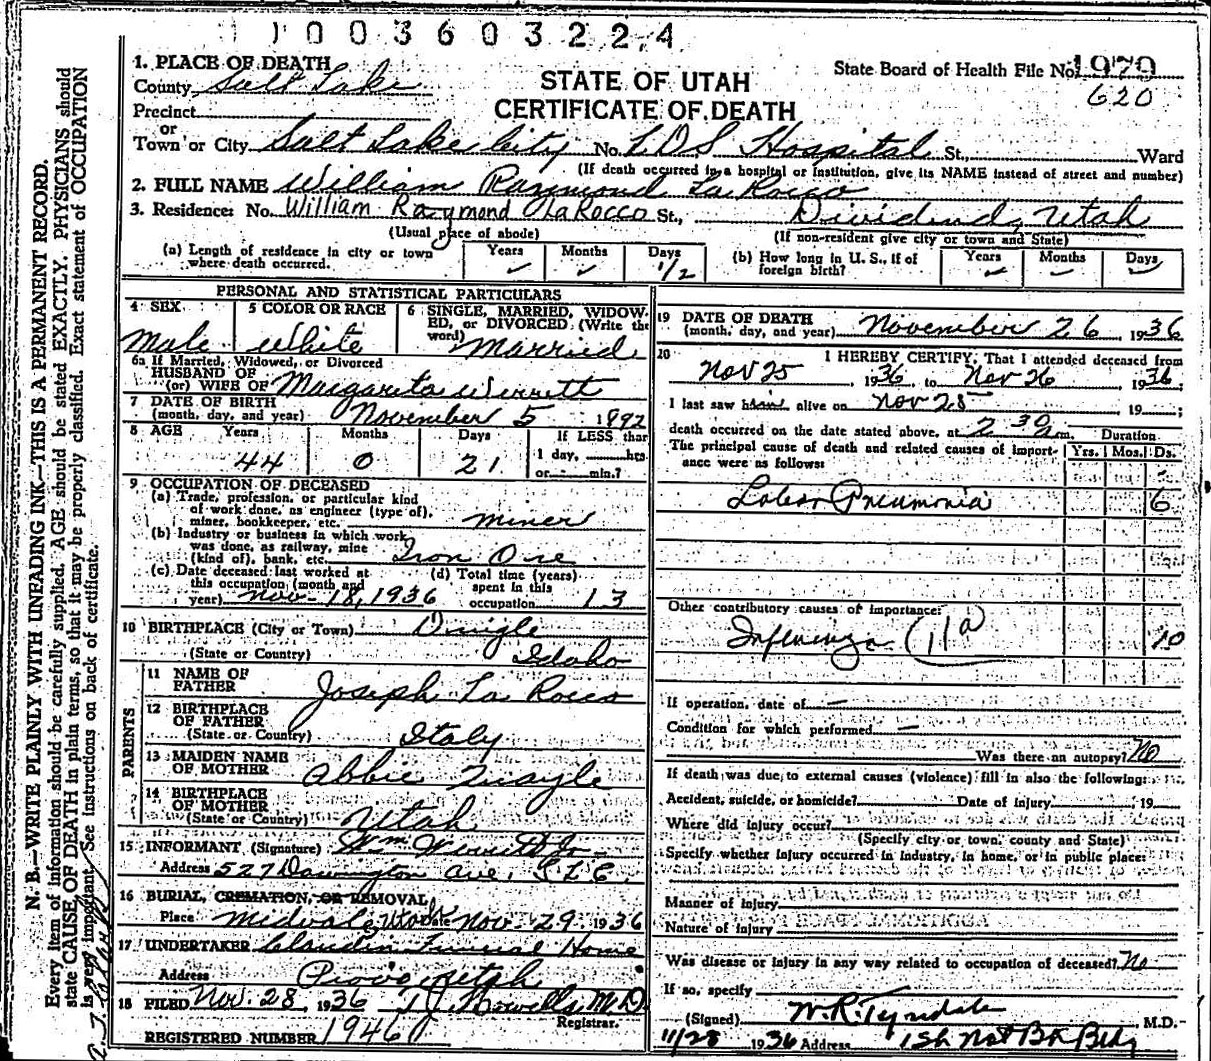 1003603224
1. PLACE OF DEATH
County Salt Lake
STATE OF UTAH
CERTIFICATE OF DEATH
State Board of Health File No. 1979
620
Precinct
or
Town or City Salt Lake City No. L.D.S. Hospital St., Ward
(If death occurred in a hospital or institution, give its NAME instead of street and number)
2. FULL NAME William Raymond La Rocco
3. Residence: No. William Raymond LaRocco St., Dividend, Utah
(Usual place of abode) (If non-resident give city or town and State)
(a) Length of residence in city or town where death occurred. Years Months Days 1/2
(b) How long in U. S., if of foreign birth? Years Months Days
PERSONAL AND STATISTICAL PARTICULARS
4 SEX Male
5 COLOR OR RACE White
6 SINGLE, MARRIED, WIDOWED, or DIVORCED (Write the word) Married
6a If Married, Widowed, or Divorced
HUSBAND OF
(or) WIFE OF Margareta Werrett
7 DATE OF BIRTH
(month, day, and year) November 5 1892
8 AGE Years Months Days If LESS than
44 0 21 1 day, hrs.
or min.?
9 OCCUPATION OF DECEASED
(a) Trade, profession, or particular kind
of work done, as engineer (type of),
miner, bookkeeper, etc. miner
(b) Industry or business in which work
was done, as railway, mine
(kind of), bank, etc. Iron Ore
(c) Date deceased last worked at
this occupation (month and
year) Nov-18, 1936
(d) Total time (years)
spent in this
occupation 13
10 BIRTHPLACE (City or Town) Dingle
(State or Country) Idaho
PARENTS
11 NAME OF
FATHER Joseph La Rocco
12 BIRTHPLACE
OF FATHER
(State or Country) Italy
13 MAIDEN NAME
OF MOTHER Abbie Quayle
14 BIRTHPLACE
OF MOTHER
(State or Country) Utah
15 INFORMANT, (Signature) Wm Werrett
Address 527 Ave. S.L.C.
16 BURIAL, CREMATION, OR REMOVAL,
Place Midvale, Utah Date Nov-29 1936
17 UNDERTAKER Claudin Funeral Home
Address Provo Utah
18 FILED Nov. 28, 1936 M.D.
Registrar.
REGISTERED NUMBER 1946
19 DATE OF DEATH
(month, day, and year) November 26 1936
20 I HEREBY CERTIFY, That I attended deceased from
Nov 25, 1936, to Nov 26 1936;
I last saw him alive on Nov 25 19 ;
death occurred on the date stated above, at 2 30 a m. Duration
The principal cause of death and related causes of importance were as follows: Yrs. Mos. Ds.
Lobar Pneumonia 6
Other contributory causes of importance:
Influenza (11a) 10
If operation, date of —
Condition for which performed —
Was there an autopsy? No
If death was due to external causes (violence) fill in also the following:
Accident, suicide, or homicide? Date of injury 19
Where did injury occur?
(Specify city or town, county and State)
Specify whether injury occurred in industry, in home, or in public place:
Manner of injury
Nature of injury
Was disease or injury in any way related to occupation of deceased? No
If so, specify
(Signed) W.R. Tyndale, M.D.
11/28 1936 Address 1st Nat Bk Bldg
N. B.—WRITE PLAINLY WITH UNFADING INK—THIS IS A PERMANENT RECORD.
Every item of information should be carefully supplied. AGE should be stated EXACTLY. PHYSICIANS should
state CAUSE OF DEATH in plain terms, so that it may be properly classified. Exact statement of OCCUPATION
is very important. See instructions on back of certificate.